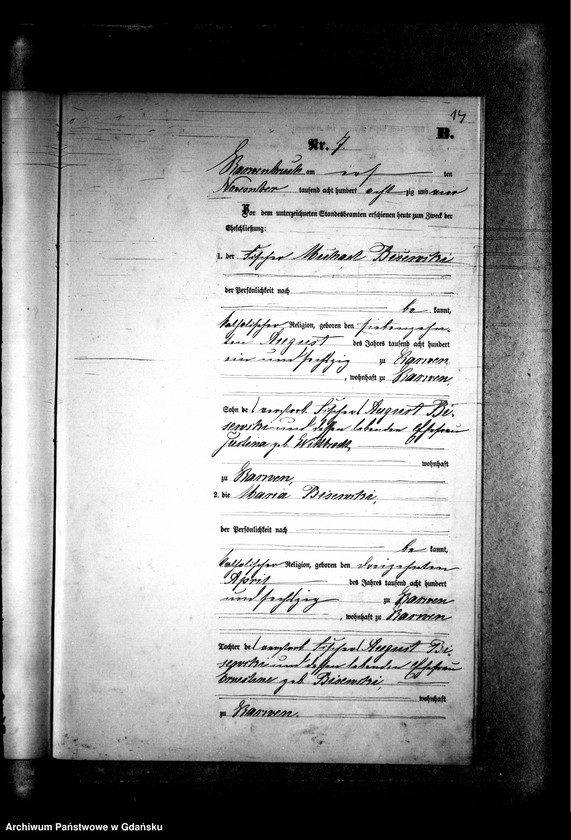 14
B.
Nr. 7.
Karwenbruch am elf ten
November tausend acht hundert acht zig und vier
Vor dem unterzeichneten Standesbeamten erschienen heute zum Zweck der
Eheschließung:
1. der Fischer Michael Bisewski
der Persönlichkeit nach
be kannt,
katholischer Religion, geboren den siebenzehn-
ten August des Jahres tausend acht hundert
ein und sechszig zu Karwen
, wohnhaft zu Karwen,
Sohn de (verstorb. Fischer) August Bi-
sewski und dessen lebenden Ehefrau
Justina geb.
wohnhaft
zu Karwen,
2. die Maria Bisewski,
der Persönlichkeit nach
be kannt,
katholischer Religion, geboren den dreizehnten
April des Jahres tausend acht hundert
und sechszig zu Karwen
, wohnhaft zu Karwen
Tochter de (verstorb. Fischer) August Bi-
sewski und dessen lebenden Ehefrau
Ernestine geb. Bisewski,
wohnhaft
zu Karwen.
Archiwum Państwowe w Gdańsku